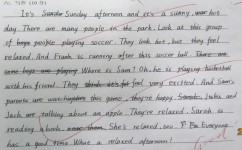 It's Sunday afternoon and it's a sunny, hot
day. There are many people in the park. Look at this group
of people playing soccer. They look hot, but they feel
relaxed. And Frank is running after this soccer ball. There are
some boys are playing Where is Sam? Oh, he is playing basketball
with his friend. They feel very excited. And Sam's
parents are this game, they're happy. Jack are talking about an apple. They're relaxed. Sarah is
reading a book. She's relaxed, too. Everyone
has a good time. What a relaxed afternoon!
Good